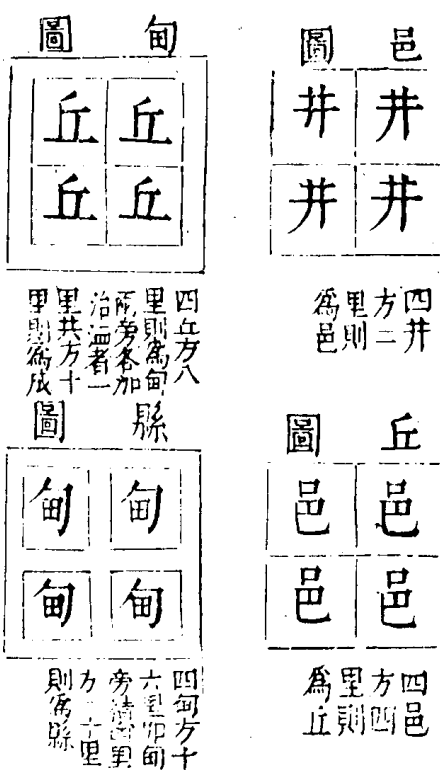 邑圖
井井
井井
四井
方二
里則
爲邑
丘圖
邑邑
邑邑
四邑
方四
里則
爲丘
甸圖
丘丘
丘丘
四丘方八
里則爲甸
兩旁各加
治洫者一
里共方十
里則爲成
縣圖
甸甸
甸甸
四甸方十
六里甸
旁里
方二十里
則爲縣